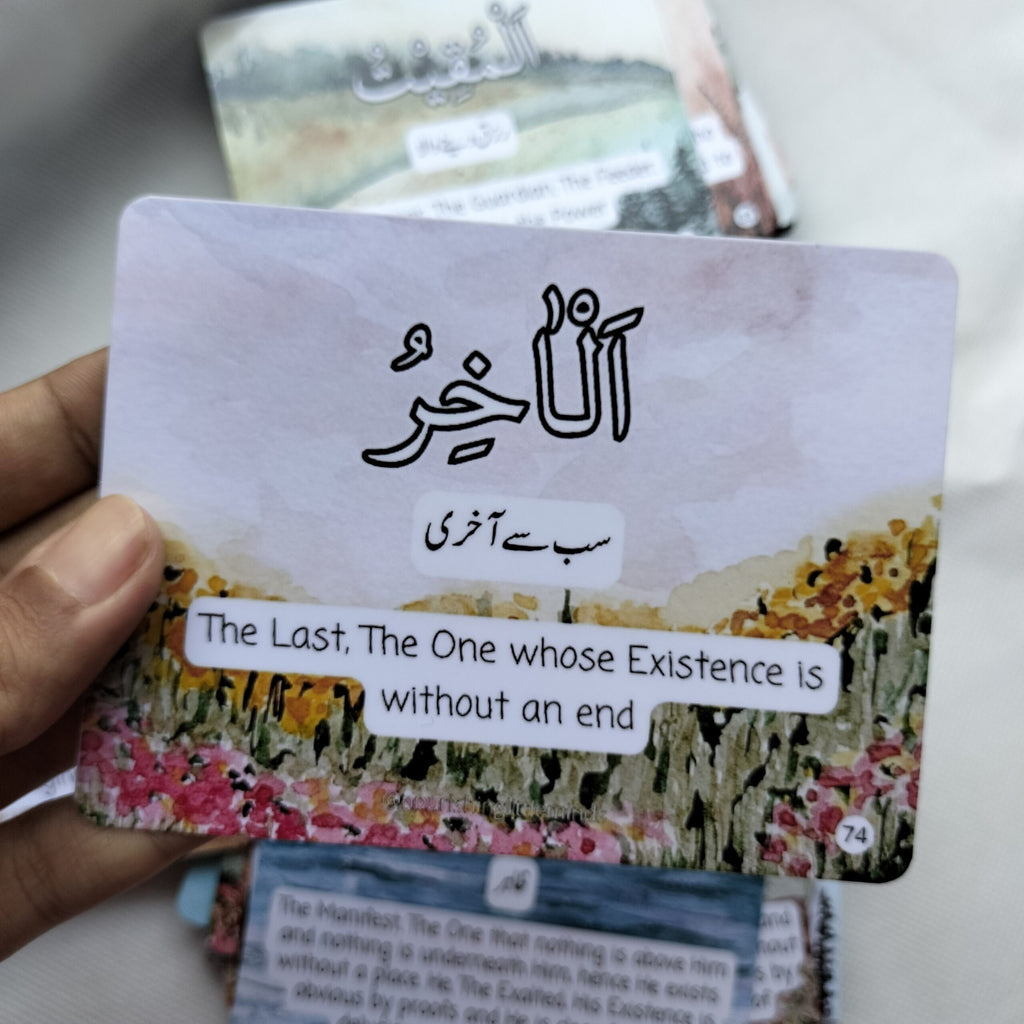 اَلْمُقِيْتُ
The Guardian, The Feeder
the Power
اَلْاٰخِرُ
سب سے آخری
The Last, The One whose Existence is
without an end
74
ظاہر
The Manifest, The One that nothing is above Him
and nothing is underneath Him, hence He exists
without a place. He, The Exalted, His Existence is
obvious by proofs and He is